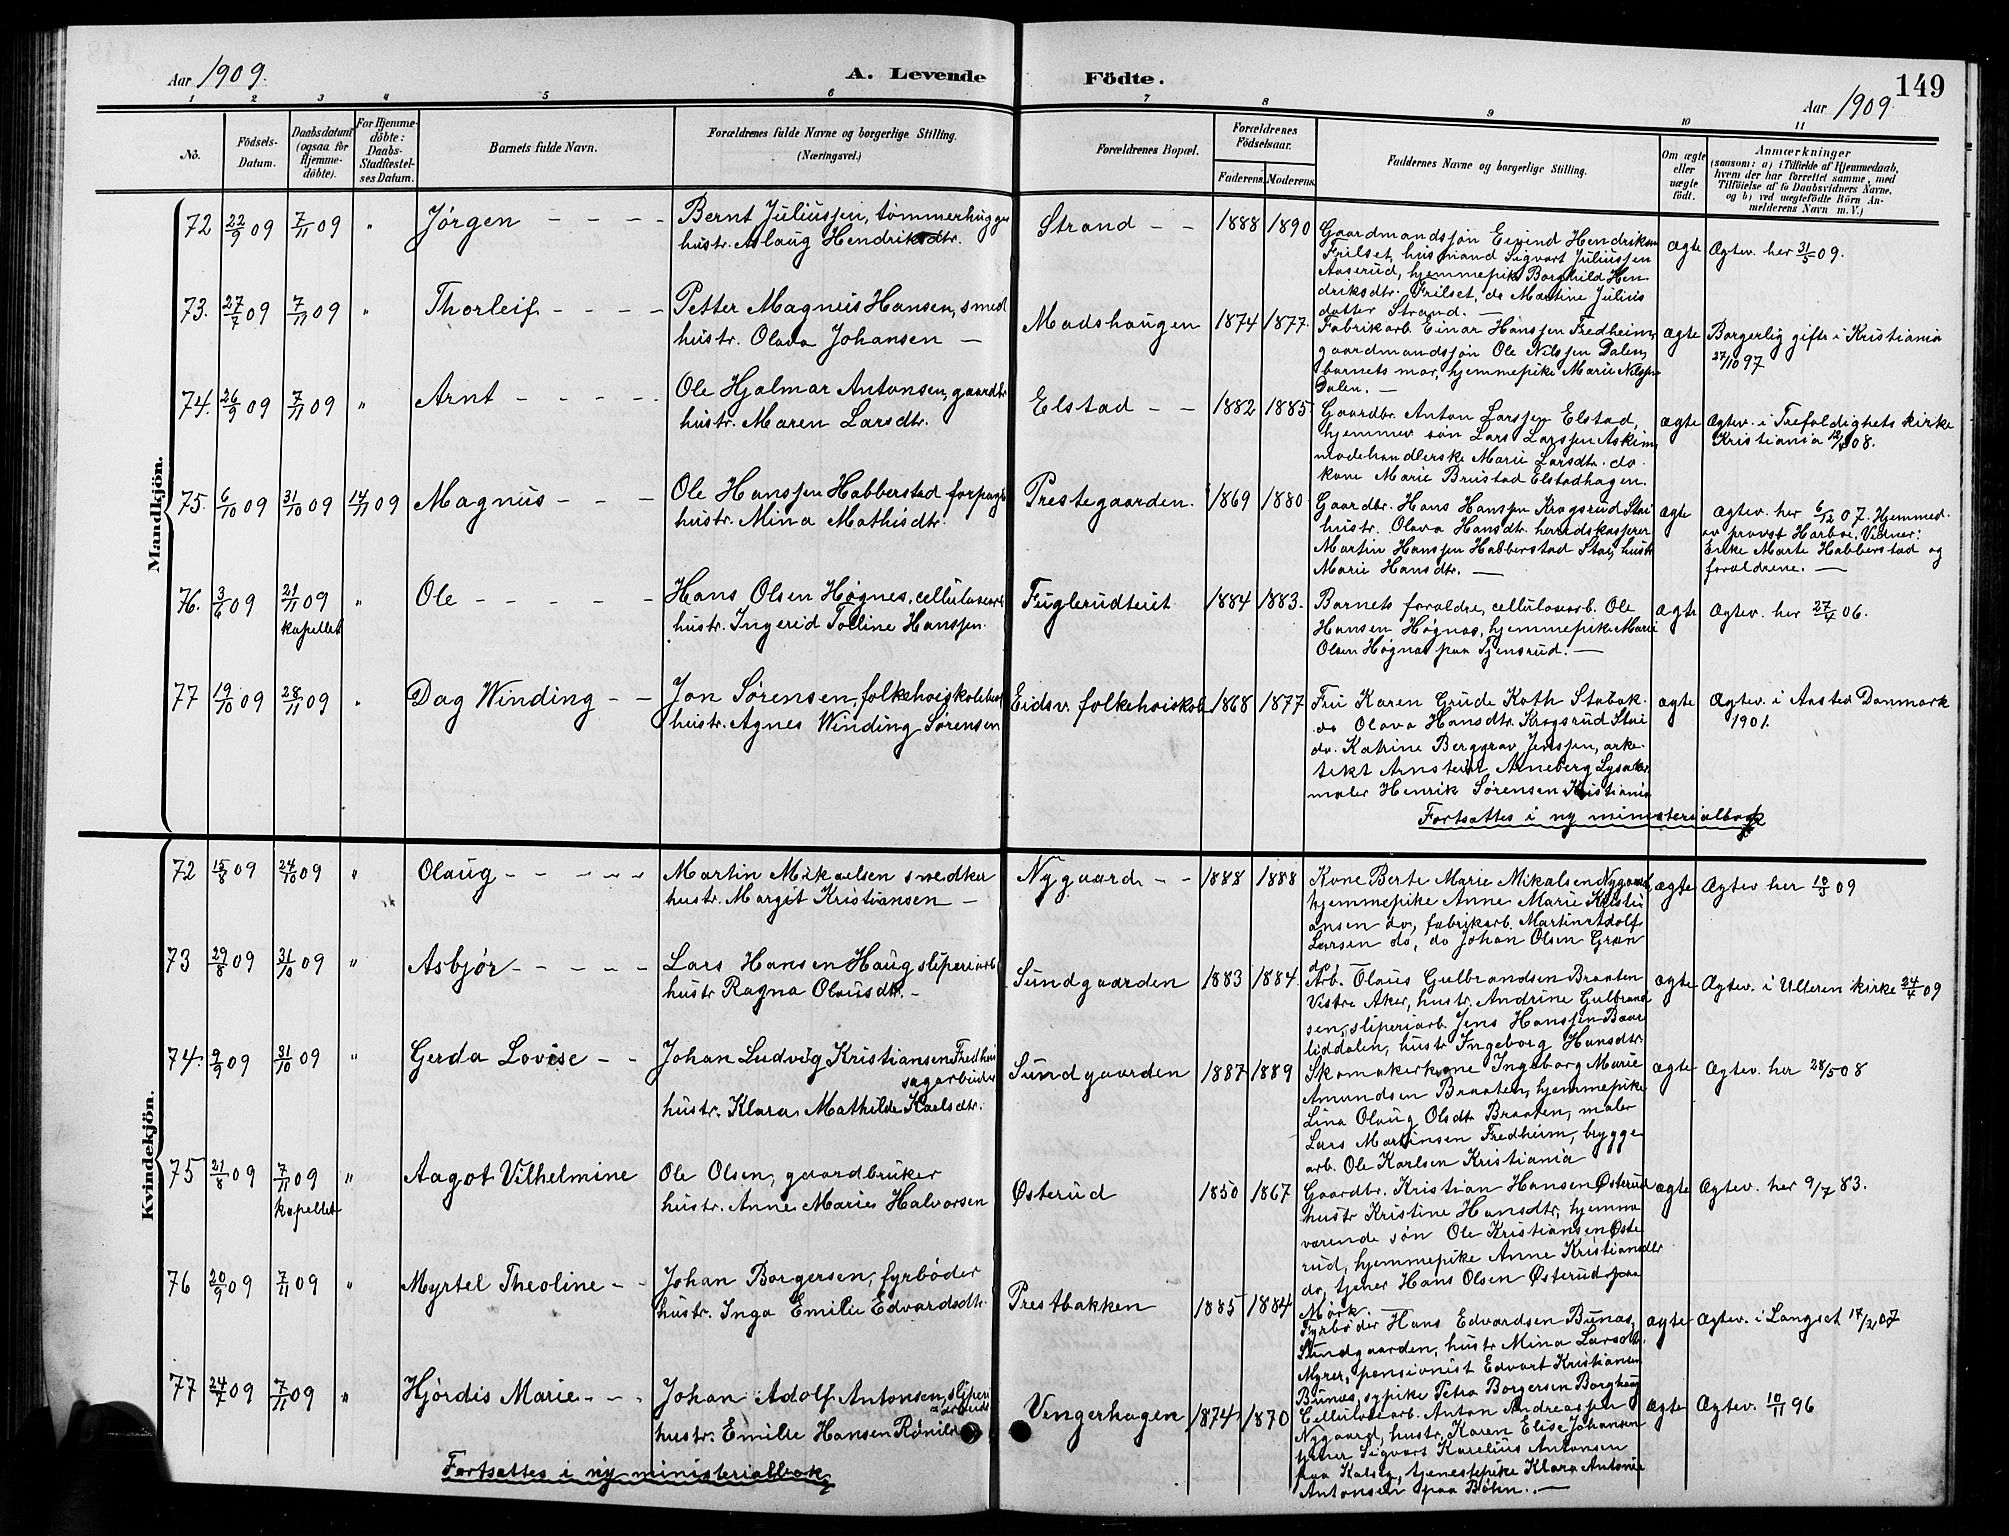 149
Aar 1909.
A. Levende
Födte.
Aar 1909
1 2 3 4 5 6 7 8 9 10 11
No.
Födsels-
Datum.
Daabsdatum
(ogsaa for
Hjemme-
döbte).
For Hjemme-
döbte:
Daabs-
Stadfæstel-
ses Datum.
Barnets fulde Navn.
Forældrenes fulde Navne og borgerlige Stilling.
(Næringsvei.)
Forældrenes Bopæl.
Forældrenes
Födselsaar.
Faderens. Moderens.
Faddernes Navne og borgerlige Stilling.
Om ægte
eller
uægte
födt.
Anmærkninger
(saasom: a) i Tilfælde af Hjemmedaab,
hvem der har forrettet samme, med
Tilföielse af to Daabsvidners Navne,
og b) ved uægtefödte Börn An-
melderens Navn m. V.)
Mandkjön.
72 22/9 09 7/11 09 " Jørgen - - - -
Bernt Juliussen, tømmerhugger
hustr. Aslaug Hendriksdtr.
Strand - - 1888 1890
Gaardmandssøn Eivind Hendriksen
Frilset, husmand Sigvart Juliussen
Aaserud, hjemmepike Borghild Hen
driksdtr. Frilset, do Martine Julius
datter Strand. —
ægte Ægtev. her 31/5 09.
73. 27/7 09 7/11 09 " Thorleif - - - -
Petter Magnus Hansen, smed
hustr. Olava Johansen —
Madshaugen 1874 1877.
Fabrikarb. Einar Hanssen Fredheim,
gaardmandssøn Ole Nilssen Dalen,
barnets mor, hjemmepike Marie Nilssen
Dalen. —
ægte Borgerlig gift i Kristiania
27/10 97
74. 26/9 09 7/11 09 " Arnt - - - -
Ole Hjalmar Antonsen, gaardbr
hustr. Maren Larsdtr.
Elstad - - 1882 1885
Gaardbr. Anton Larssen Elstad,
hjemmev søn Lars Larssen Askim,
modehandlerske Marie Larsdtr. do.
kone Marie Brustad Elstadhagen.
ægte Ægtev. i Trefoldighets kirke
Kristiania 08.
75. 6/10 09 31/10 09 14/11 09 Magnus - - -
Ole Hanssen Habberstad forpagter
hustr. Mina Mathisdtr.
Prestegaarden. 1869 1880
Gaardbr. Hans Hanssen Krogsrud Stai
hustr. Olava Hansdtr. herredskasserer
Martin Hanssen Habberstad Stai, hustr
Marie Hansdtr. —
ægte Ægtev. her 6/12 07. Hjemmed.
av provst Harboe. Vidner:
Enke Marte Habberstad og
forældrene. —
76. 3/6 09 21/11 09 " Ole - - - - -
kapellet
Hans Olsen Høgnes, cellulosearb
hustr. Ingerid Tolline Hanssen.
Fuglerudteiet 1884 1883.
Barnets forældre, cellulosearb. Ole
Hansen Høgnas, hjemmepike Marie
Olsen Høgnas paa Tjensrud. —
ægte Ægtev. her 27/4 06.
77 19/10 09 28/11 09 " Dag Winding - -
Jon Sørensen, folkehøiskolebest
hustr. Agnes Winding Sørensen
Eidsv. folkehøiskole 1868 1877
Fru Karen Grude Koth Stabæk.
do Olava Hansdtr. Krogsrud Stai
do. Katrine Berggrav Jenssen, arke-
tekt Arnstein Arneberg Lysaker
maler Henrik Sørensen Kristiania
ægte Ægtev. i Ansted Danmark
1901.
Fortsættes i ny ministerialbok
Kvindekjön.
72 15/8 09 24/10 09 " Olaug - - - - -
Martin Mikaelsen snedker
hustr. Margit Kristiansen —
Nygaard - - 1888 1888
Kone Berte Marie Mikalsen Nygaard,
hjemmepike Anne Marie Kristi
ansen do, fabrikarb. Martin Adolf
Larsen do, do Johan Olsen Grøn
do
ægte Ægtev her 10/3 09
73 29/8 09 31/10 09 " Asbjør - - - - -
Lars Hansen Haug sliperiarb
hustr Ragna Olausdtr. -
Sundgaarden 1883 1884.
Arb. Olaus Gulbrandsen Braaten
Vestre Aker, hustr. Andrine Gulbrand
sen, sliperiarb Jens Hanssen Baar
liddalen, hustr Ingeborg Hansdtr
ægte Ægtev. i Ulleren kirke 24/4 09
74. 9/9 09 31/10 09 " Gerda Lovise - -
Johan Ludvig Kristiansen Fredheim
sagarbeider
hustr. Klara Mathilde Karlsdtr.
Sundgaarden 1887 1889
Skomakerkone Ingeborg Marie
Amundsen Braaten, hjemmepike
Lina Olaug Olsdtr Braaten, maler
Lars Martinsen Fredheim, brygge
arb. Ole Karlsen Kristiania
ægte Ægtev. her 28/5 08
75 21/8 09 7/11 09 " Aagot Vilhelmine
kapellet
Ole Olsen, gaardbruker
hustr. Anne Marie Halvorsen
Østerud 1850 1867
Gaardbr. Kristian Hansen Østerud
hustr Kristine Hansdtr, hjemme
værende søn Ole Kristiansen Øste
rud, hjemmepike Anne Kristiansdtr
do, tjener Hans Olsen Østerud paa
Mørk.
ægte Ægtev. her 9/7 83.
76 20/9 09 7/11 09 " Myrtel Theoline - -
Johan Borgersen, fyrbøder
hustr. Inga Emilie Edvardsdtr.
Prestbakken 1885 1884
Fyrbøder Hans Edvardsen Bunæs,
Sundgaarden, hustr Mina Larsdtr.
Myrer, pensionist Edvart Kristiansen
Bunæs, sypike Petra Borgersen Borghaug
ægte Ægtev. i Langset 17/2 07
77 24/7 09 7/11 09 " Hjørdis Marie - - -
Johan Adolf Antonsen, sliperi
arbeider
hustr. Emilie Hansen Rønild
Vengerhagen 1874 1870
Cellulosearb. Anton Andreassen
Nygaard, hustr. Karen Elise Johansen
tjener Sigvart Karelius Antonsen
paa Kalseg, tjenestepike Klara Antonie
Antonsen paa Bøhn. —
ægte Ægtev. 10/11 96
Fortsættes i ny ministerialbok